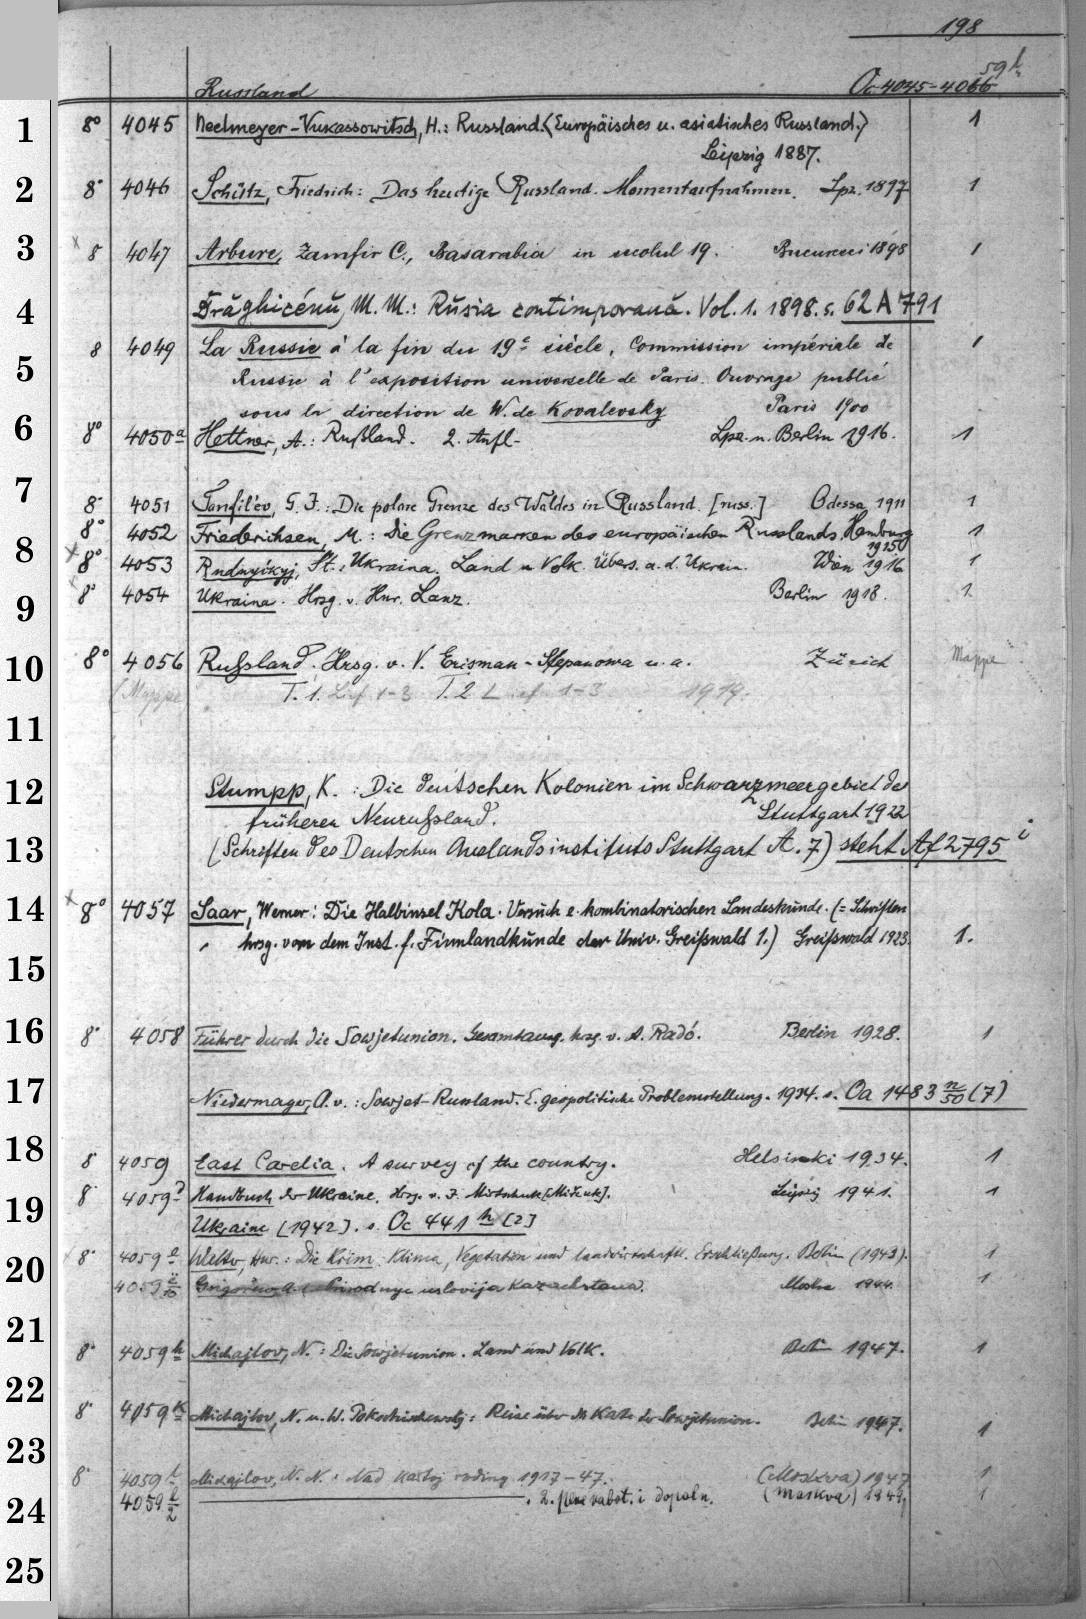 198
Russland Oc 4045-4066 59 l
1 8° 4045 Neelmeyer-Vukassowitsch, H.: Russland. (Europäisches u. asiatisches Russland.) 1
Leipzig 1887.
2 8° 4046 Schütz, Friedrich: Das heutige Russland. Momentaufnahmen. Lpz. 1897 1
3 x 8 4047 Arbure, Zamfir C., Basarabia in secolul 19. Bucuresci 1898 1
4 Drăghicénŭ, M. M.: Rŭsia contimporană. Vol. 1. 1898. s. 62 A 791
8 4049 La Russie à la fin du 19e siècle, Commission impériale de 1
5 Russie à l'exposition universelle de Paris. Ouvrage publié
sous la direction de W. de Kovalevsky Paris 1900
6 8° 4050 a Hettner, A.: Rußland. 2. Aufl. Lpz. u. Berlin 1916. 1
7 8° 4051 Tanfil'ev, G. I.: Die polare Grenze des Waldes in Russland. [russ.] Odessa 1911 1
8° 4052 Friederichsen, M.: Die Grenzmarken des europäischen Russlands. Hamburg 1
1915
8 x 8° 4053 Rudnyćkyj, St.: Ukraina. Land u. Volk. Übers. a. d. Ukrain. Wien 1916 1
9 x 8° 4054 Ukraina. Hrsg. v. Hnr. Lanz. Berlin 1918. 1.
10 8° 4056 Rußland. Hrsg. v. V. Erisman-Stepanowa u. a. Zürich Mappe
(Mappe) T. 1. Lief. 1-3 T. 2 Lief. 1-3 1919.
11
12 Stumpp, K.: Die deutschen Kolonien im Schwarzmeergebiet des
früheren Neurußland. Stuttgart 1922
13 (Schriften des Deutschen Auslandsinstituts Stuttgart A. 7) steht Af 2795 i
14 x 8° 4057 Saar, Werner: Die Halbinsel Kola. Versuch e. kombinatorischen Landeskunde. (= Schriften
hrsg. von dem Inst. f. Finnlandkunde der Univ. Greifswald 1.) Greifswald 1923. 1.
15
16 8° 4058 Führer durch die Sowjetunion. Gesamtausg. hrsg. v. A. Radó. Berlin 1928. 1
17 Niedermayer, O. v.: Sowjet-Russland. E. geopolitische Problemstellung. 1934. s. Oa 1483 n/50 (7)
18 8° 4059 East Carelia. A survey of the country. Helsinki 1934. 1
19 8° 4059 Handbuch der Ukraine. Hrsg. v. I. Mirtschuk [Mirčuk]. Leipzig 1941. 1
Ukraine [1942]. s. Oc 441 h [2]
20 8° 4059 e Welte, Hnr.: Die Krim. Klima, Vegetation und landwirtschaftl. Erschließung. Berlin (1943). 1
4059 Grigor'ev, A. Prirodnye uslovija Kazachstana. Moskva 1944. 1
21 8° 4059 h Michajlov, N.: Die Sowjetunion. Land und Volk. Berlin 1947. 1
22 8° 4059 k Michajlov, N. u. W. Pokschischewskij: Reise über die Karte der Sowjetunion. Berlin 1947. 1
23
8° 4059 l Michajlov, N. N.: Nad kartoj rodiny 1917-47. (Moskva) 1947 1
24 4059 l/2 . 2. pererabot. i dopoln. (Moskva) 1949, 1
25